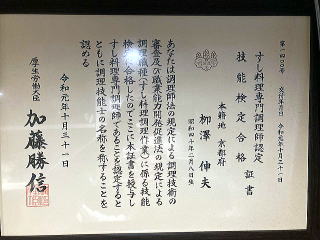 第一四〇〇号 交付年月日 令和元年十月三十一日
すし料理専門調理師認定
技能検定合格証書
本籍地 京都府
柳澤 伸夫
昭和四十年二月八日生
あなたは調理師法の規定による調理技術の
審査及び職業能力開発促進法の規定による
調理職種(すし料理調理作業)に係る技能
検定に合格したのでここに本証書を授与し
すし料理専門調理師であることを認定すると
ともに調理技能士の名称を称することを
認める
令和元年十月三十一日
厚生労働大臣 加藤勝信